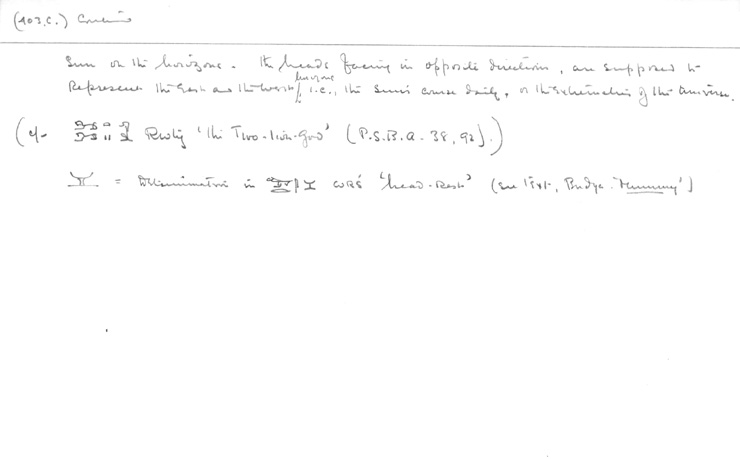 (403.C.) Continued
Sun on the horizons. The heads facing in opposite direction, are supposed to
Represent the East and the West horizons i.e., the Sun's course daily, or the extremities of the Universe.
(cf. Rwty 'the Two-lion-God' (P.S.B.A. 38, 92).)
= Determinative in WRS 'head-Rest' (see Text, Budge 'Mummy')